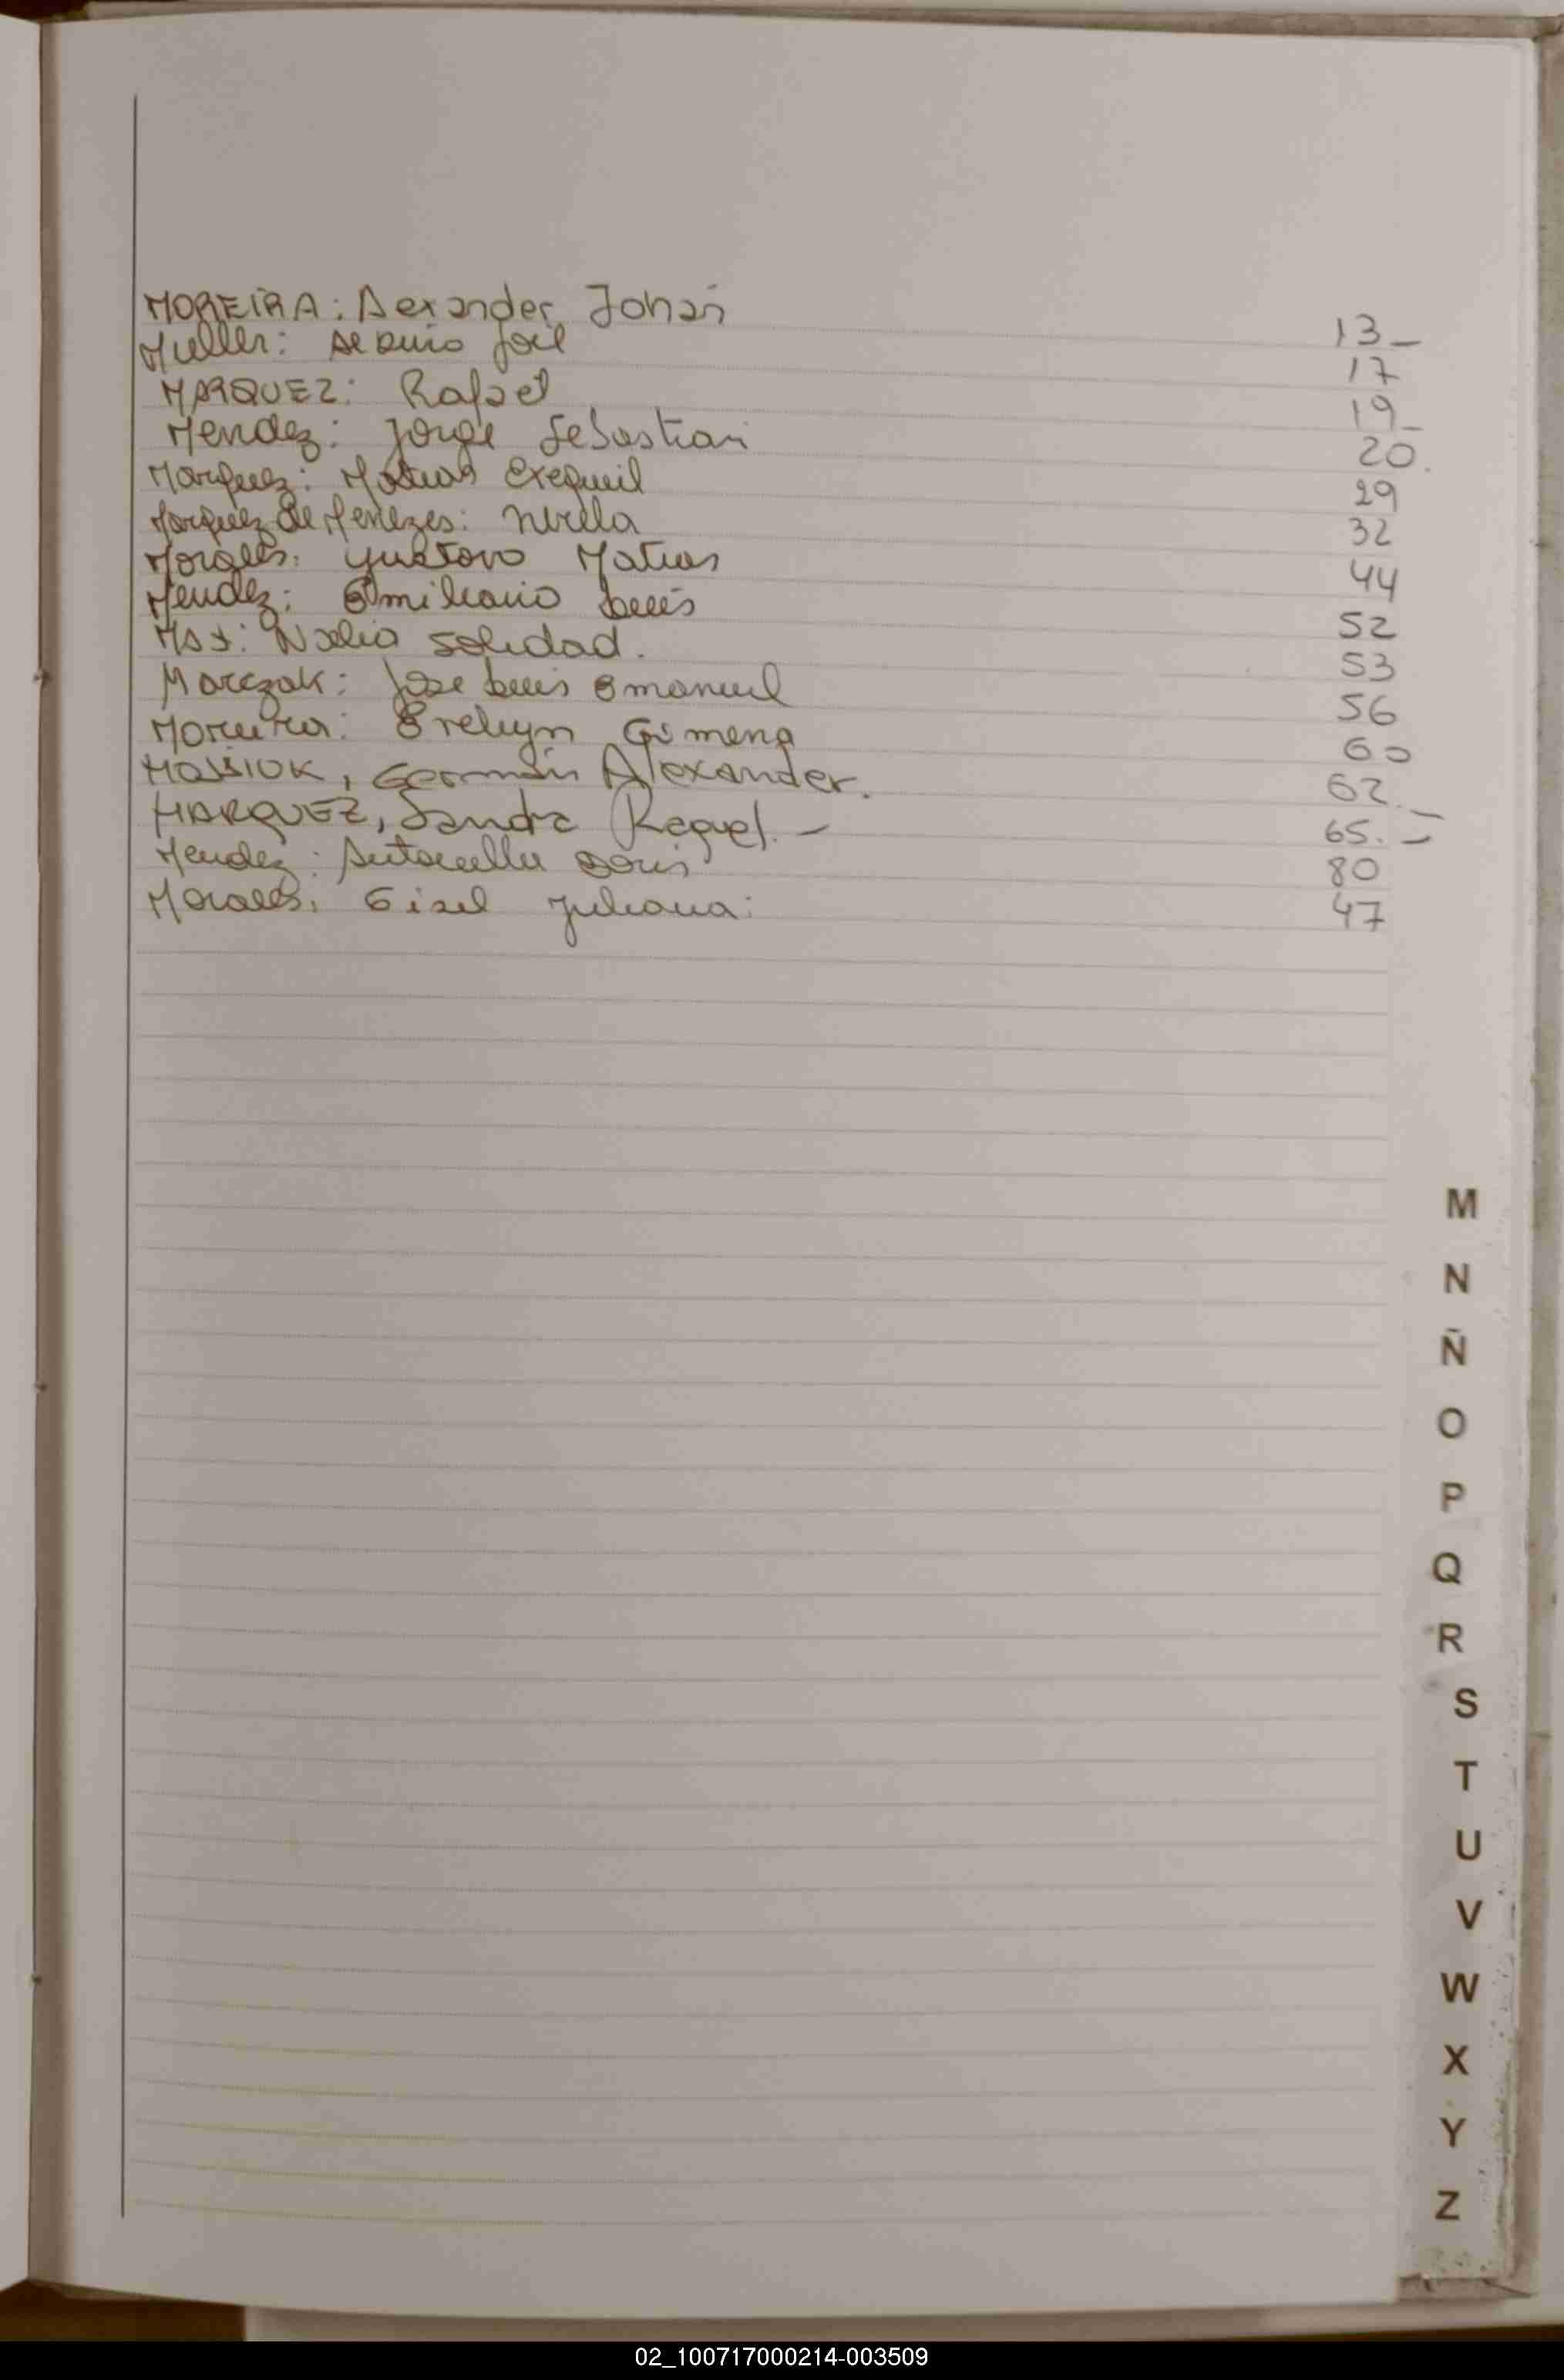 MOREIRA: Alexander Johan 13_
Muller: Joel 17
MARQUEZ: Rafael 19_
Mendez: Jorge Sebastian 20.
Marquez: Matias Exequiel 29
Marquez de Menezes: Mirela 32
Morales: Gustavo Matias 44
Mendez: Emiliano Luis 52
Noelia Soledad. 53
Marczak: Jose Luis Emanuel 56
Moreira: Evelyn Gimena 60
Germán Alexander. 62.
MARQUEZ, Sandra Raquel. - 65.
Mendez: Antonella 80
Morales: Gisel Juliana: 47
M
N
Ñ
O
P
Q
R
S
T
U
V
W
X
Y
Z
02_100717000214-003509